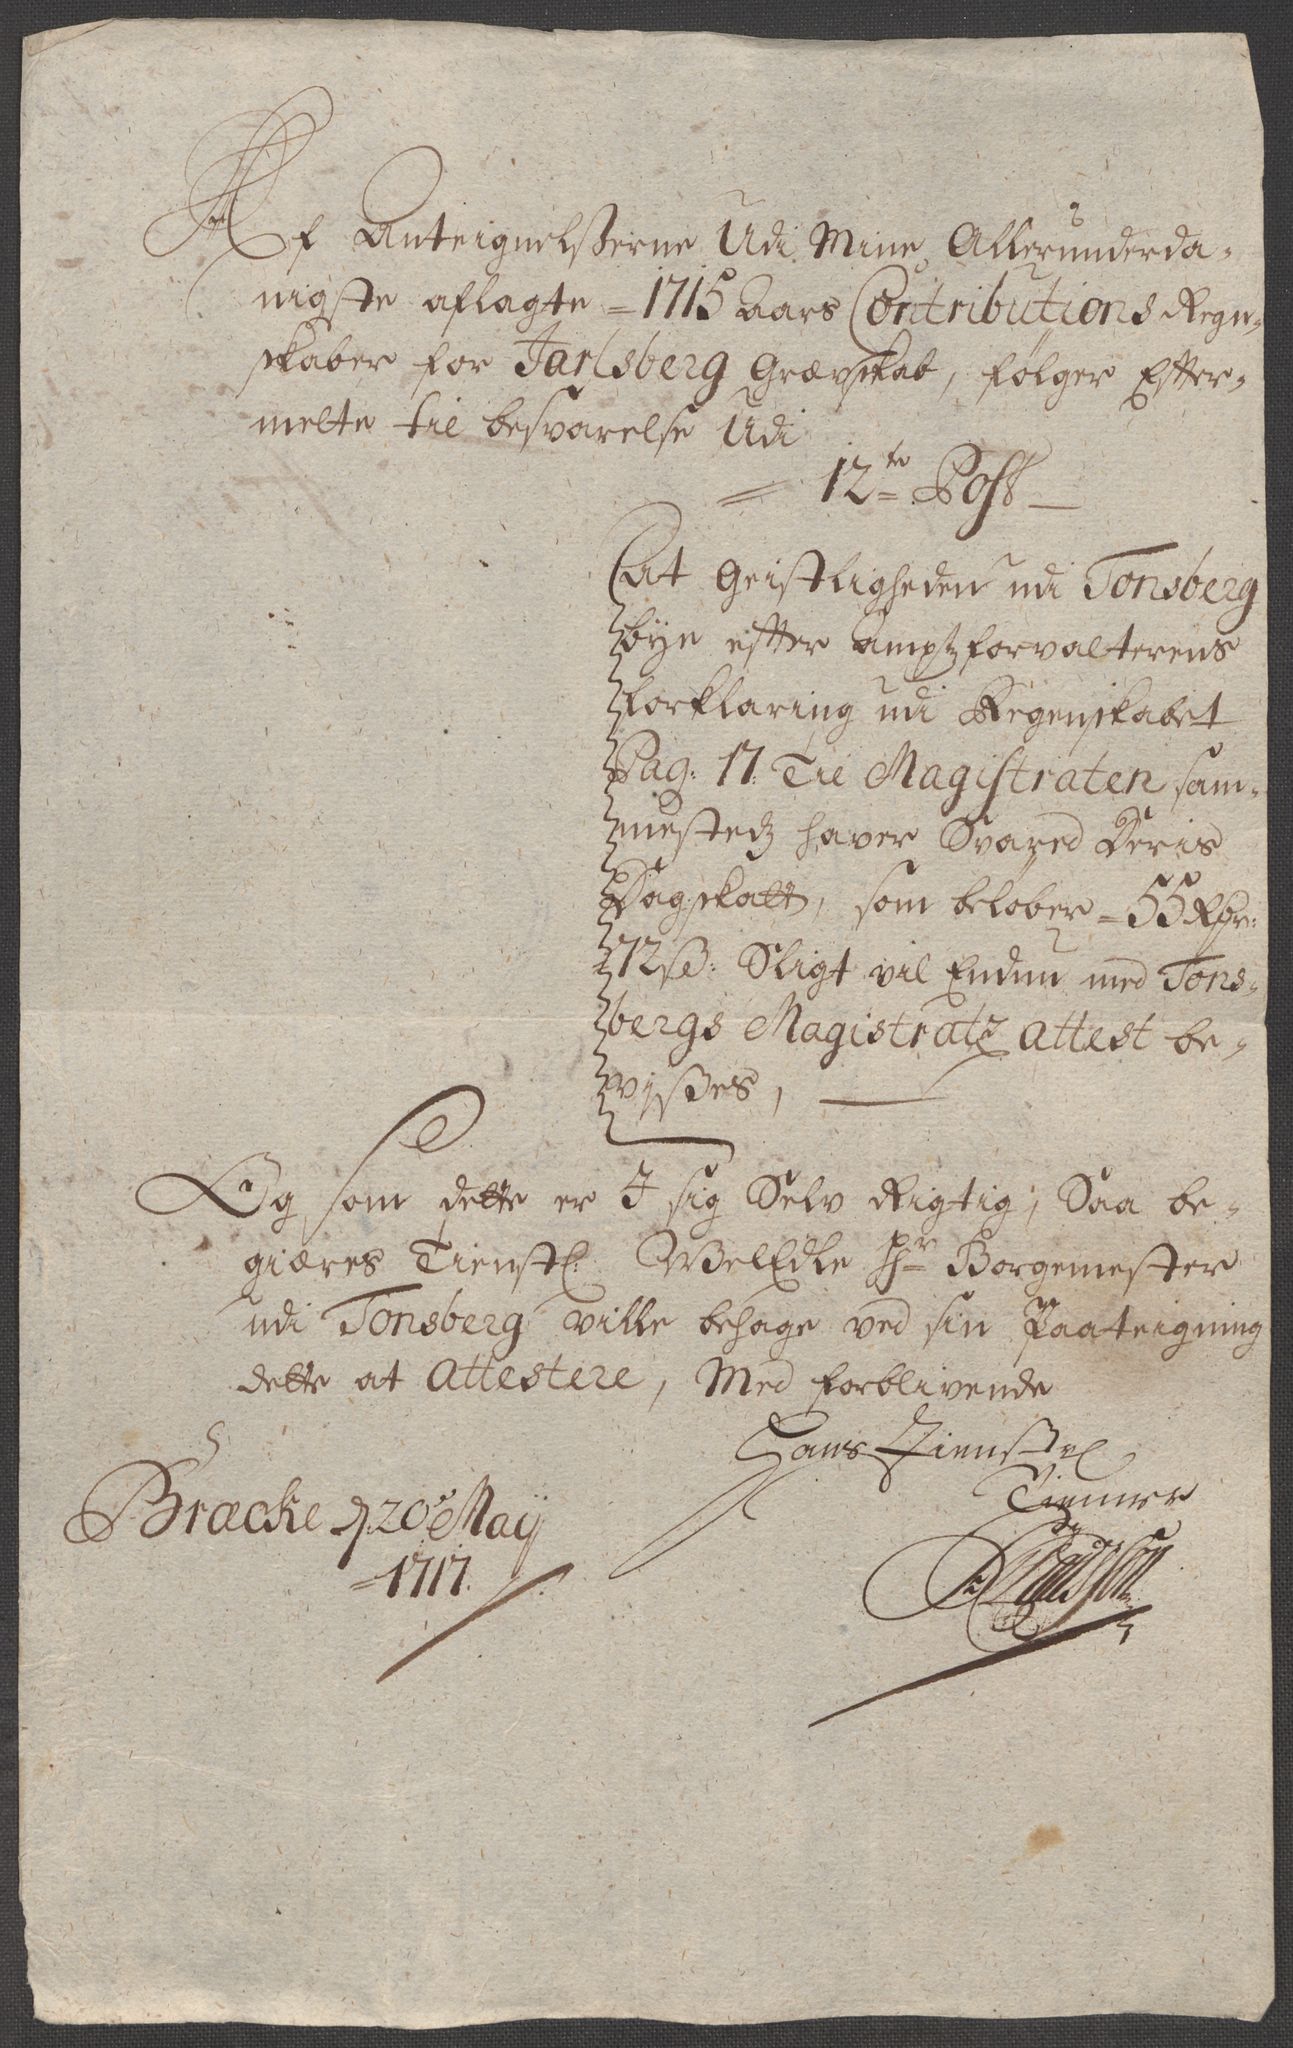 Af Anteignelsßerne Udi Mine Allerunderda-
nigste aflagte = 1715 Aars Contributions Regn-
skaber for Jarlsberg Grævskab, følger Efter-
melte til besvarelse Udi
= 12te Post
at Geistligheden udi Tonsberg
bÿe efter amptzforvalterens
forklaring udi Regenskabet
Pag: 17. Til Magistraten sam-
mestedz haver Svared Deris
Dagskatt, som beløber = 55 Rdr:
72 ß: Sligt vil Endnu med Tons-
bergs Magistratz Attest be-
vißes,
Og som dette er J sig Selv Rigtig, Saa be-
giæres Tienstl: WelEdle Hr Borgemester
udi Tonsberg ville behage ved sin Paateigning
dette at Attestere, Med forblivende
Hans Tienstl
Tienner
Bracke d. 20 Maÿ
= 1717.